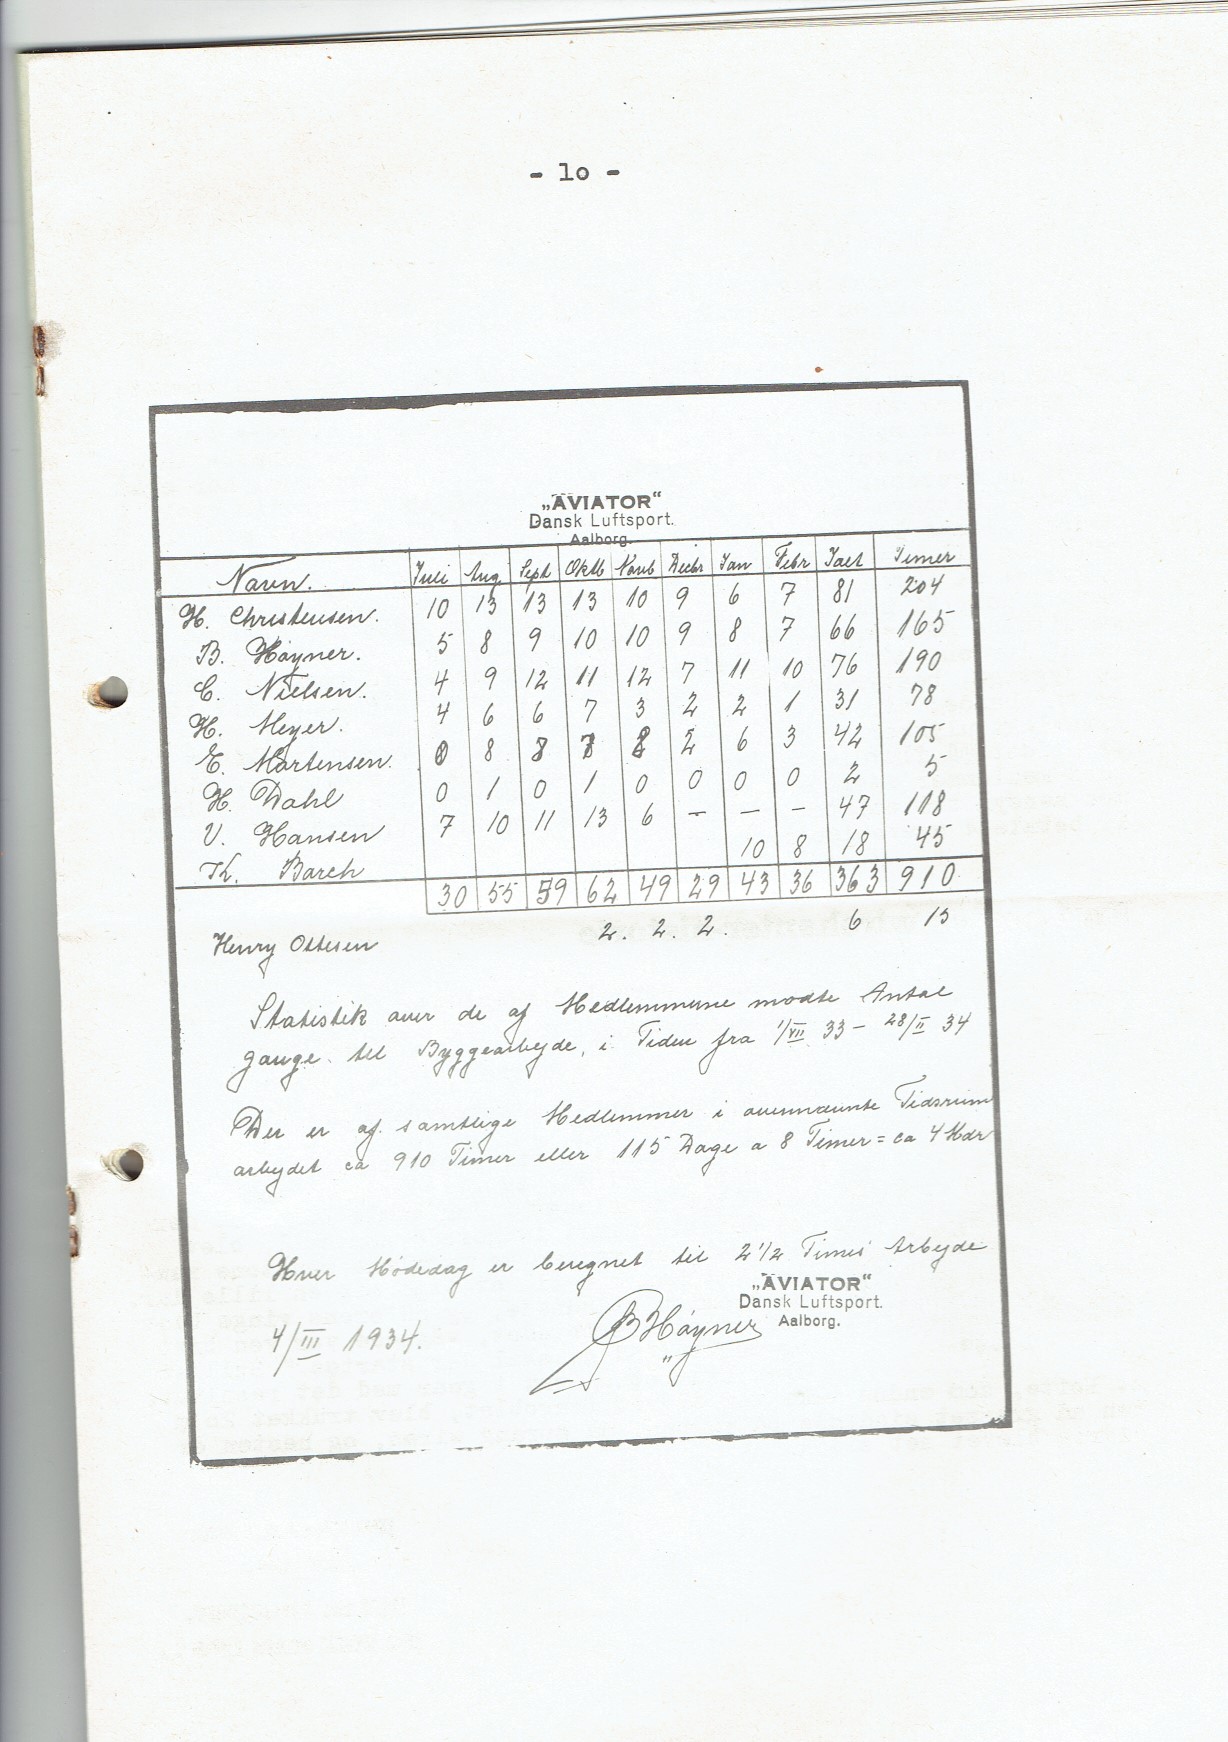 - lo -
„AVIATOR“
Dansk Luftsport.
Aalborg.
Navn. Juli Aug Sept Oktb Novb Decbr Jan Febr Ialt Timer
H. Christensen. 10 13 13 13 10 9 6 7 81 204
B. Høyner. 5 8 9 10 10 9 8 7 66 165
C. Nielsen. 4 9 12 11 12 7 11 10 76 190
H. Meyer. 4 6 6 7 3 2 2 1 31 78
E. Mortensen. 0 8 8 7 8 2 6 3 42 105
H. Dahl 0 1 0 1 0 0 0 0 2 5
V. Hansen 7 10 11 13 6 – – – 47 118
Barch 10 8 18 45
30 55 59 62 49 29 43 36 363 910
Henry Ottesen 2. 2. 2. 6 15
Statistik over de af Medlemmerne mødte Antal
gange til Byggearbejde, i Tiden fra 1/VII 33 – 28/II 34
Der er af samtlige Medlemmer i ovennævnte Tidsrum
arbejdet ca 910 Timer eller 115 Dage a 8 Timer = ca 4 Mdr
Hver Mødedag er beregnet til 2 1/2 Times Arbejde
„AVIATOR“
Dansk Luftsport.
Aalborg.
4/III 1934.
B Høyner